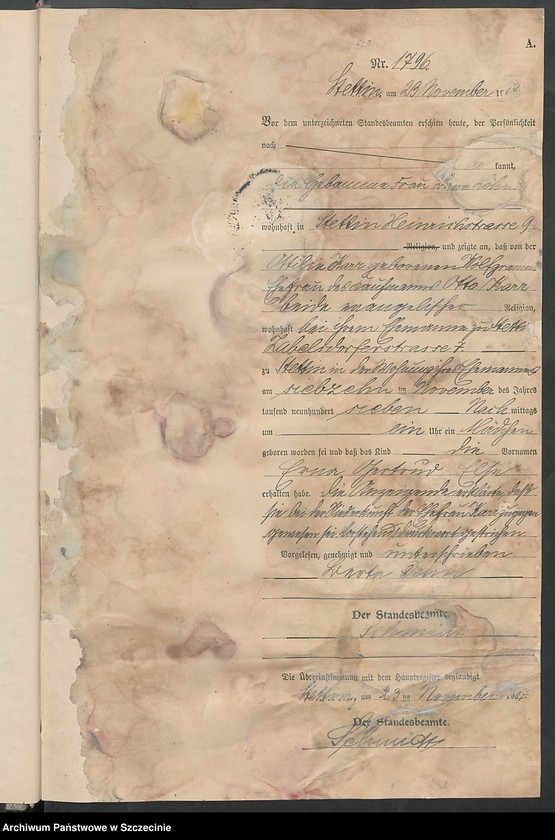 A.
Nr. 1796.
Stettin, am 23 November 19
Vor dem unterzeichneten Standesbeamten erschien heute, der Persönlichkeit
nach
kannt,
die Hebamme Frau
wohnhaft in Stettin Heinrichstrasse 9.
Religion, und zeigte an, daß von der
Ottilie Karz geborenen Wolfgramm
Ehefrau des Kaufmanns Otto Karz
beide evangelischer Religion,
wohnhaft bei ihrem Ehemanne zu Stettin
Zabelsdorferstrasse 7.
zu Stettin in der Wohnung ihres Ehemannes
am siebzehn ten November des Jahres
tausend neunhundert sieben Nach mittags
um ein Uhr ein Mädchen
geboren worden sei und daß das Kind die Vornamen
Erna Gertrud Else
erhalten habe. Die Anzeigende erklärte, daß
sie bei der Niederkunft der Ehefrau Karz zugegen
gewesen sei. Vorstehend Druckwort gestrichen.
Vorgelesen, genehmigt und unterschrieben
Berta
Der Standesbeamte.
Schmidt
Die Übereinstimmung mit dem Hauptregister beglaubigt
Stettin, am 23 ten November
Der Standesbeamte.
Schmidt
Archiwum Państwowe w Szczecinie